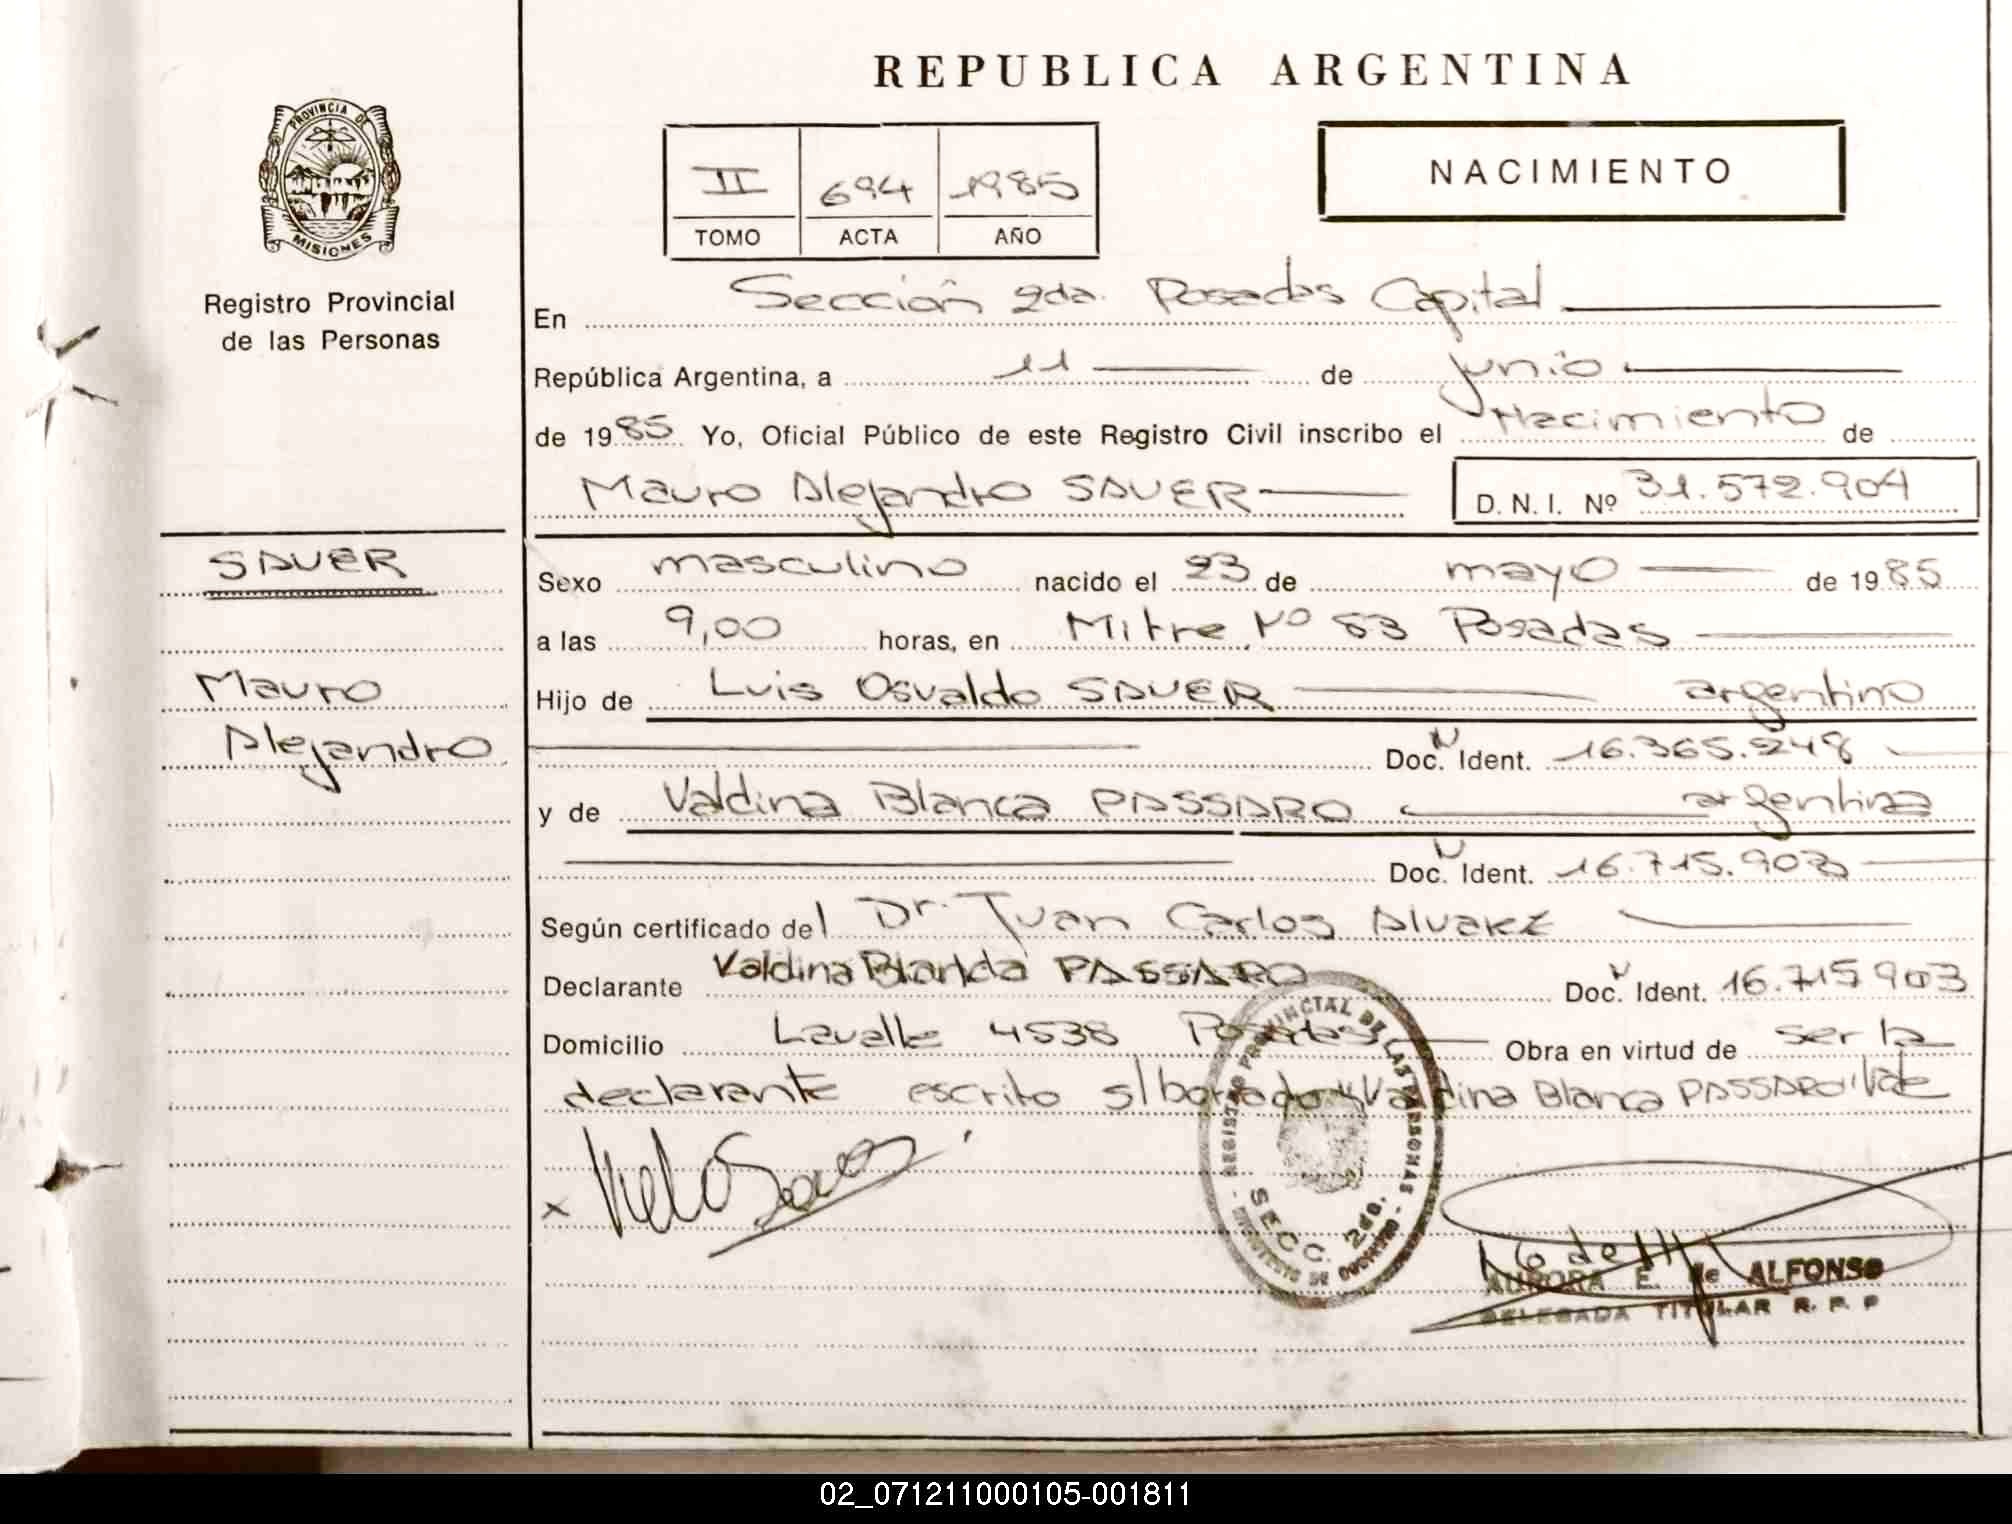 REPUBLICA ARGENTINA
PROVINCIA DE
MISIONES
Registro Provincial
de las Personas
II 694 1985
TOMO ACTA AÑO
NACIMIENTO
En Sección 2da. Posadas Capital
República Argentina, a 11 de junio
de 1985 Yo, Oficial Público de este Registro Civil inscribo el Nacimiento de
Mauro Alejandro SAUER D. N. I. Nº 31.572.904
SAUER
Mauro
Alejandro
Sexo masculino nacido el 23 de mayo de 1985
a las 9,00 horas, en Mitre Nº 83 Posadas
Hijo de Luis Osvaldo SAUER argentino
Doc. N Ident. 16.365.248
y de Valdina Blanca PASSARO argentina
Doc. N Ident. 16.715.903
Según certificado del Dr. Juan Carlos Alvarez
Declarante Valdina Blanca PASSARO Doc. N Ident. 16.715.903
Domicilio Lavalle 4538 Posadas Obra en virtud de ser la
declarante escrito s/borrado "Valdina Blanca PASSARO" Vale
REGISTRO PROVINCIAL DE LAS PERSONAS
SECC. 2da.
x
AURORA E. de ALFONSO
DELEGADA TITULAR R. P. P
02_071211000105-001811